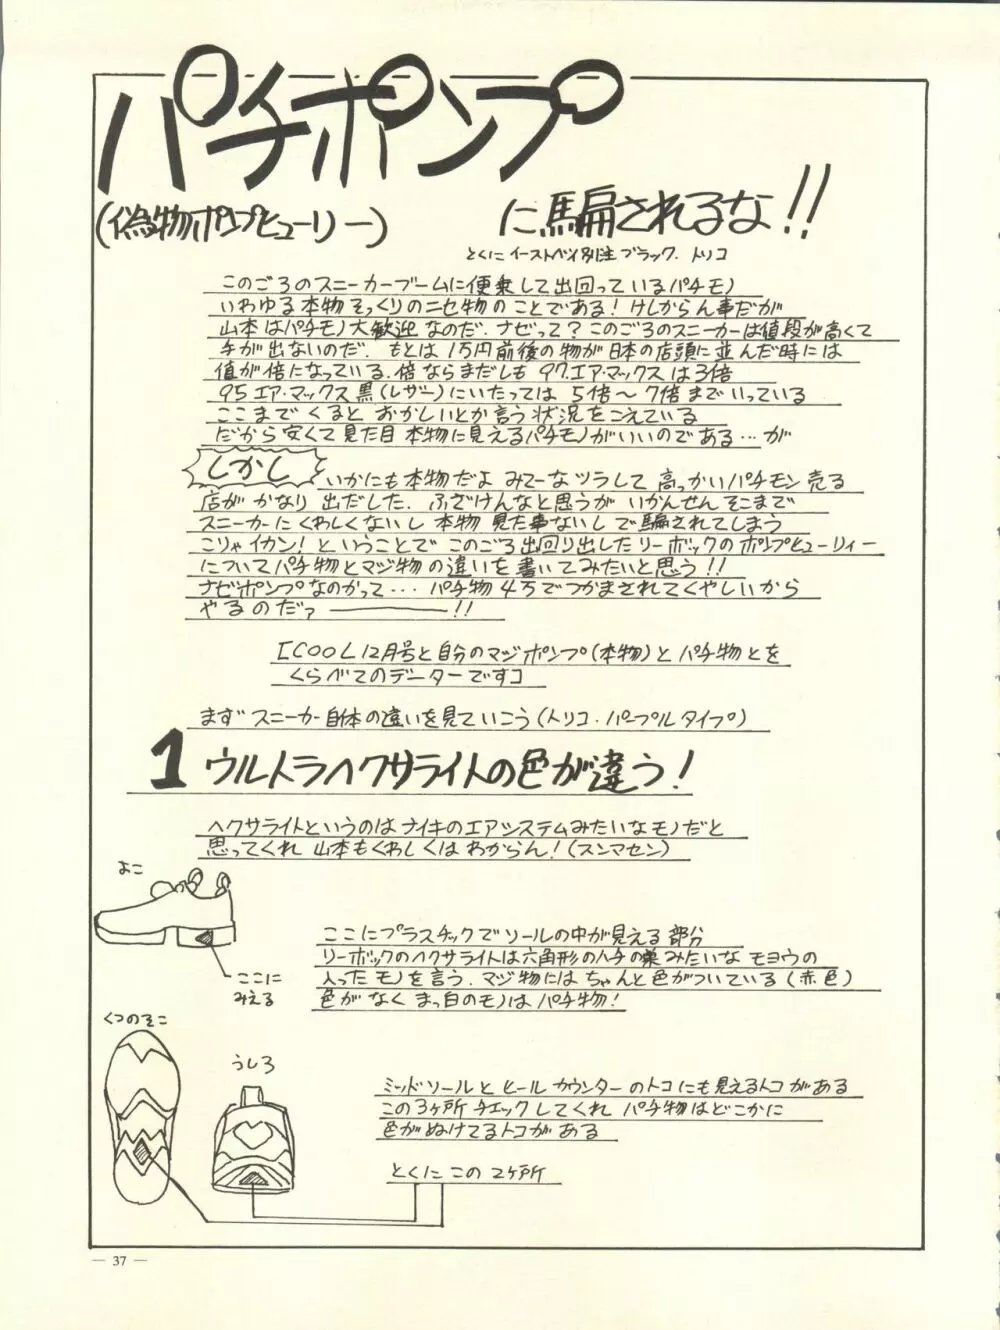 パチポンプ
(偽物ポンプヒューリー)
に騙されるな!!
とくに イーストベイ別注 ブラック. トリコ
このごろのスニーカーブームに便乗して出回っているパチモノ
いわゆる本物そっくりのニセ物のことである!けしからん事だが
山本はパチモノ大歓迎なのだ. ナゼって?このごろのスニーカーは値段が高くて
手が出ないのだ. もとは1万円前後の物が日本の店頭に並んだ時には
値が倍になっている.倍ならまだしも 97エア・マックスは3倍
95エア・マックス黒(レザー)にいたっては 5倍〜7倍までいっている
ここまでくると おかしいとか言う状況をこえている
だから安くて見た目本物に見えるパチモノがいいのである…が
しかし
いかにも本物だよ みてーなツラして 高っかいパチモン売る
店が かなり 出だした. ふざけんなと思うが いかんせん そこまで
スニーカーに くわしくないし 本物 見た事ないし で騙されてしまう
こりゃイカン!ということで このごろ出回り出したリーボックのポンプヒューリィー
についてパチ物とマジ物の違いを書いてみたいと思う!!
ナゼポンプなのかって… パチ物 4万でつかまされてくやしいから
やるのだァ ――――!!
COOL12月号と自分のマジポンプ(本物)とパチ物とを
くらべてのデーターですコ
まずスニーカー自体の違いを見ていこう(トリコ・パープルタイプ)
1 ウルトラヘクサライトの色が違う!
ヘクサライトというのはナイキのエアシステムみたいなモノだと
思ってくれ 山本もくわしくはわからん!(スンマセン)
よこ
ここに
みえる
ここにプラスチックでソールの中が見える部分
リーボックのヘクサライトは六角形のハチの巣みたいなモヨウの
入ったモノを言う. マジ物には ちゃんと色がついている(赤色)
色がなく まっ白のモノは パチ物!
くつのそこ
うしろ
ミッドソールと ヒールカウンターのトコにも見えるトコがある
この3ヶ所チェックしてくれ パチ物はどこかに
色がぬけてるトコがある
とくに この 2ヶ所
― 37 ―